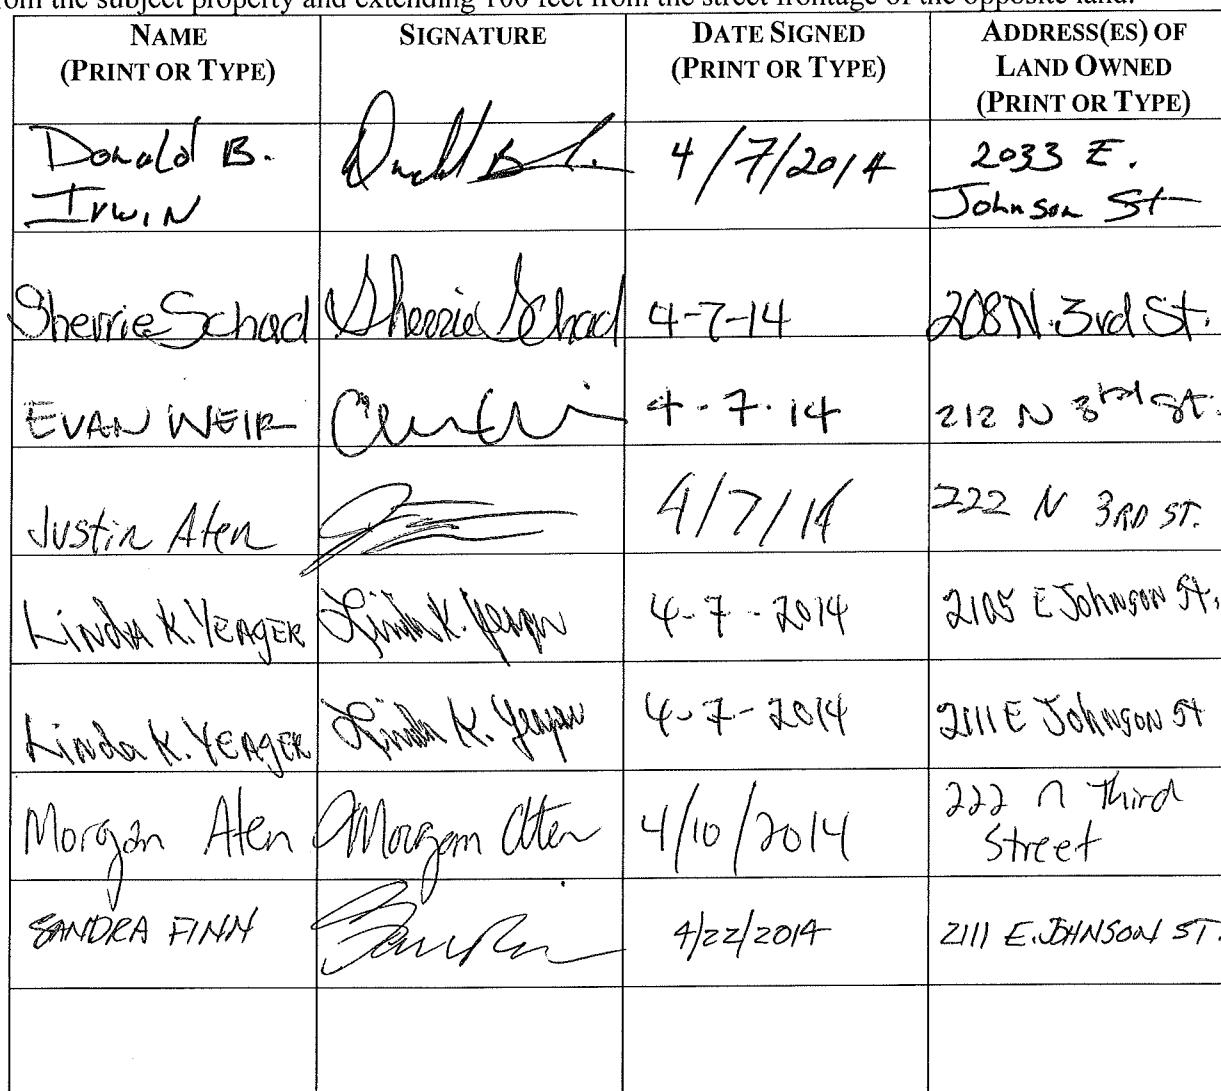 from the subject property and extending 100 feet from the street frontage of the opposite land.
NAME
(PRINT OR TYPE)
SIGNATURE
DATE SIGNED
(PRINT OR TYPE)
ADDRESS(ES) OF
LAND OWNED
(PRINT OR TYPE)
Donald B.
Irwin
4/7/2014
2033 E.
Johnson St
Sherrie Schad
Sherrie Schad
4-7-14
208 N. 3rd St.
EVAN WEIR
4-7-14
212 N 3rd St.
Justin Aten
4/7/14
222 N 3RD ST.
Linda K. YEAGER
Linda K. Yeager
4-7-2014
2105 E Johnson St.
Linda K. YEAGER
Linda K. Yeager
4-7-2014
2111 E Johnson St
Morgan Aten
Morgan Aten
4/10/2014
222 n Third
Street
SANDRA FINN
4/22/2014
2111 E. JOHNSON ST.